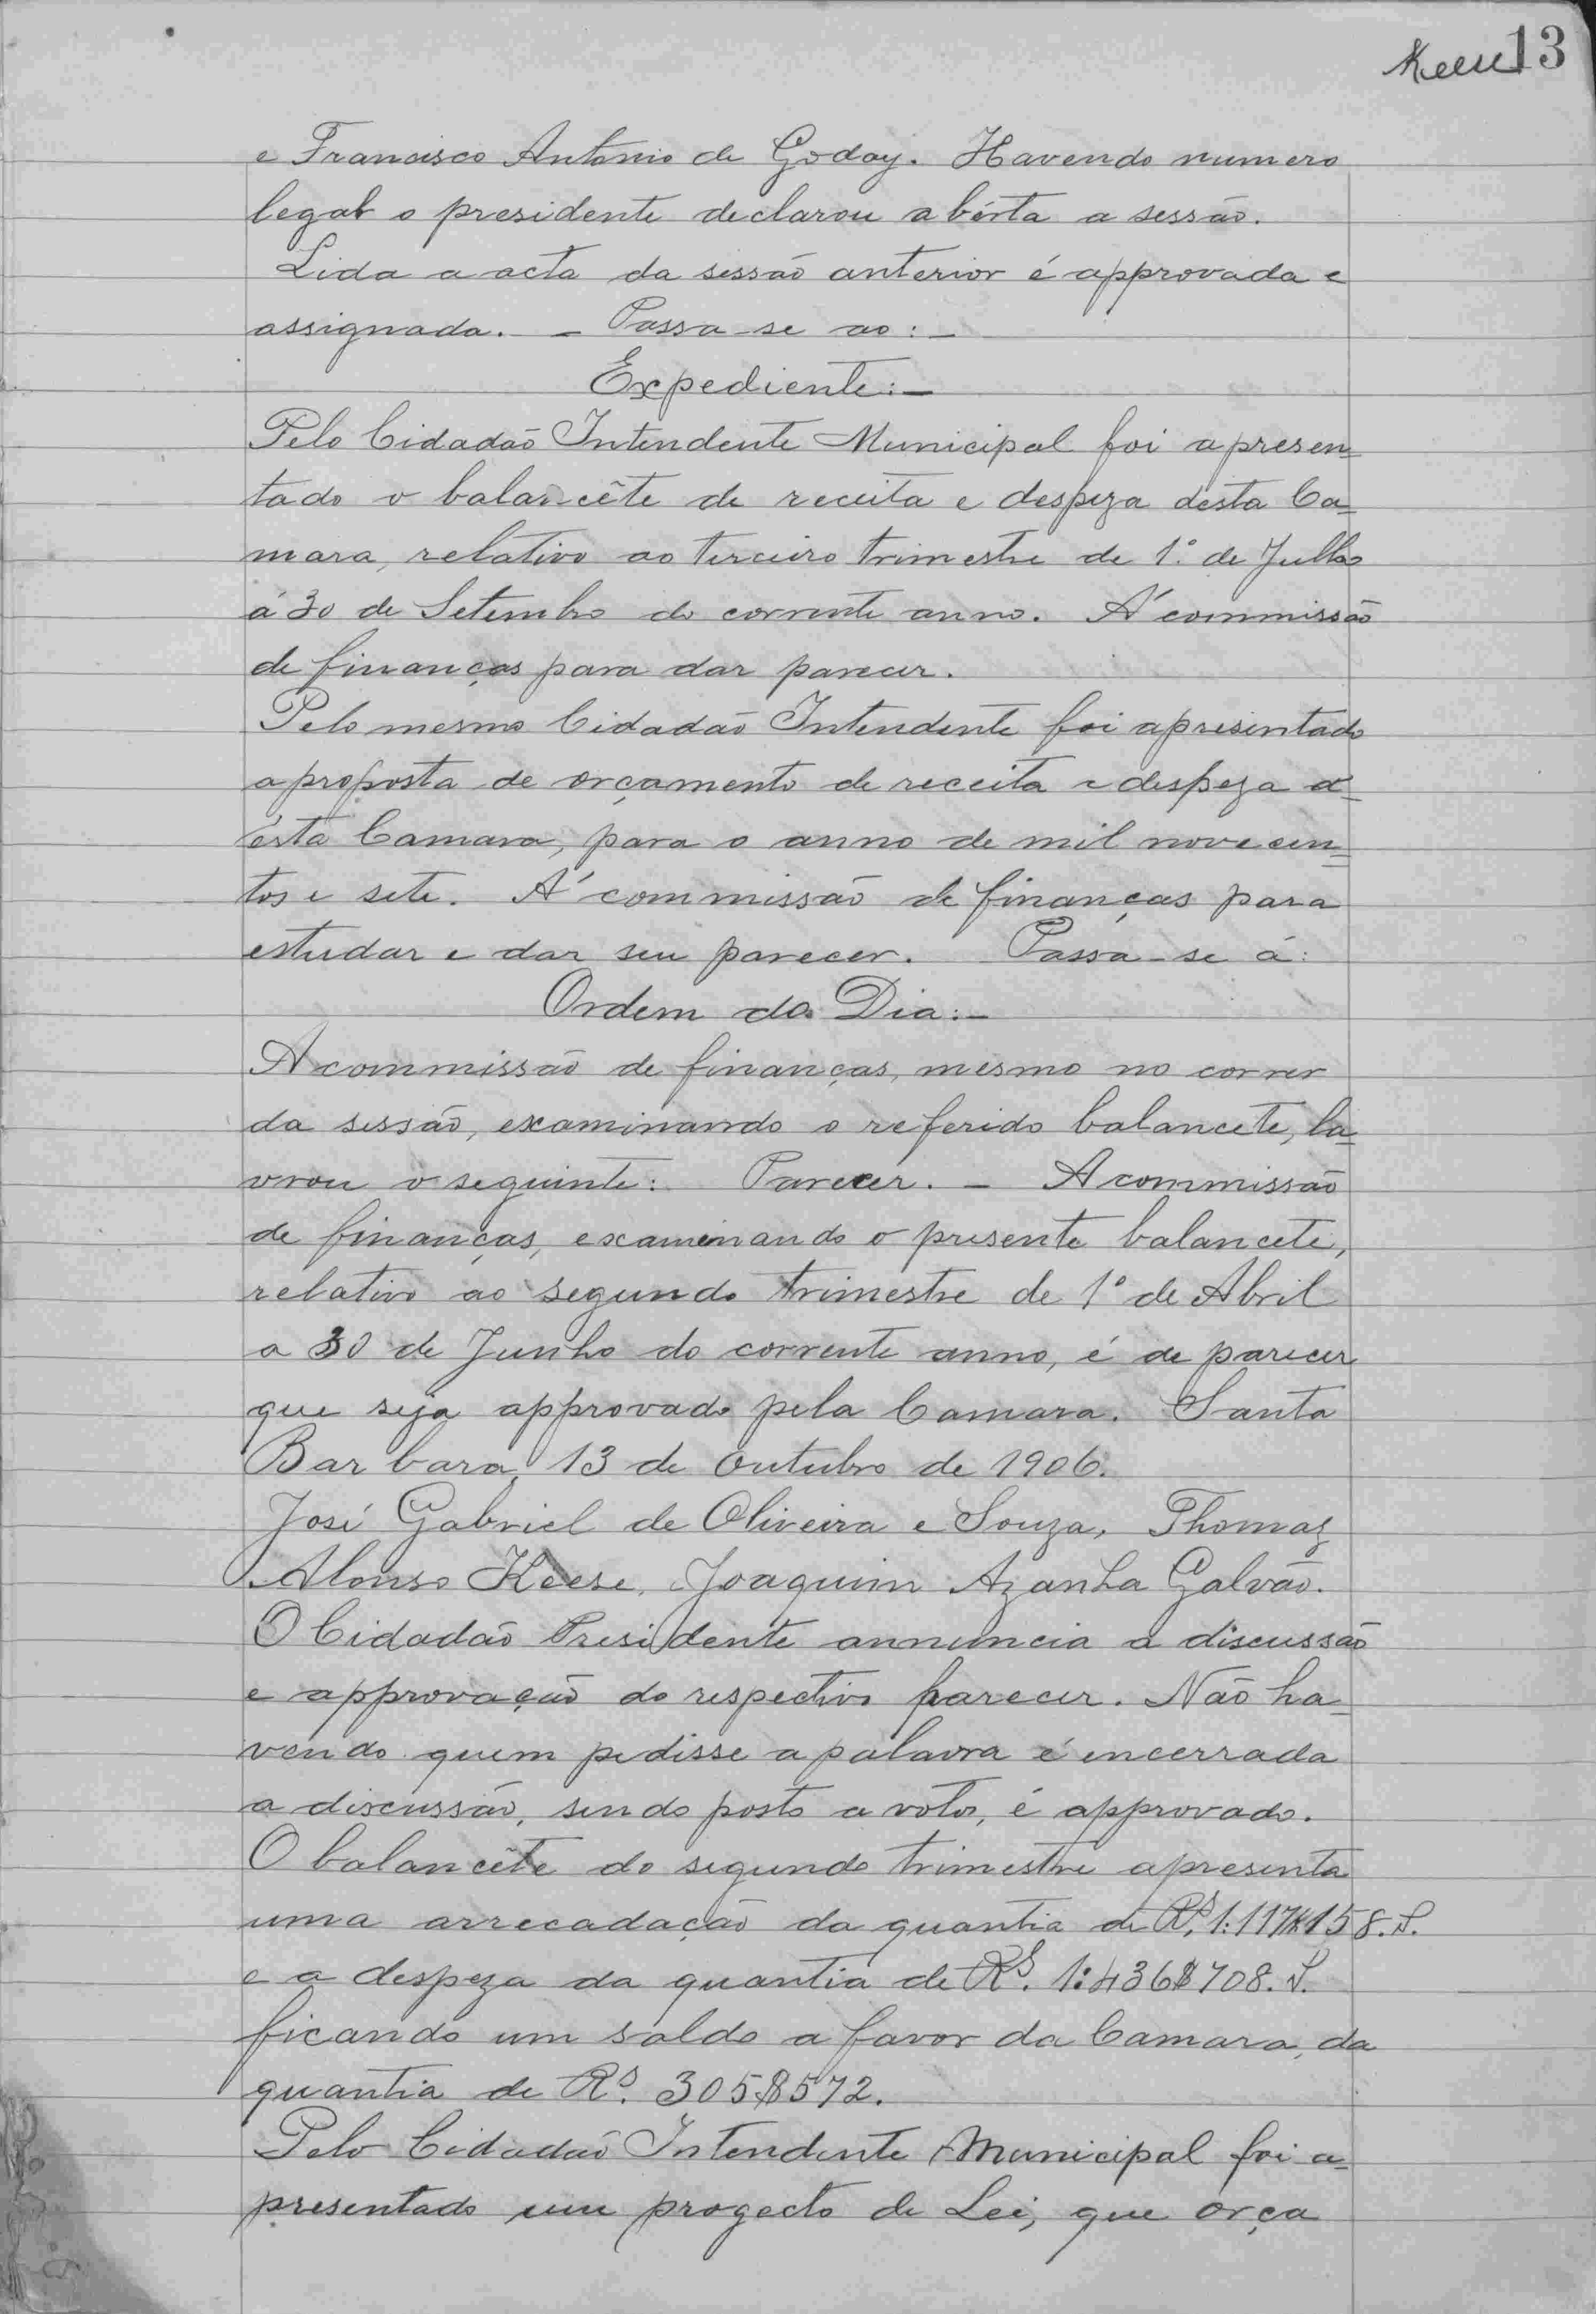 Keese 13
e Francisco Antonio de Godoy. Havendo numero
legal o presidente declarou abérta a sessão.
Lida a acta da sessão anterior é approvada e
assignada. - Passa-se ao: -
Expediente: -
Pelo Cidadão Intendente Municipal foi apresen=
tado o balancête de receita e despeza desta Ca=
mara, relativo ao terceiro trimestre de 1º de Julho
á 30 de Setembro do corrente anno. Á commissão
de finanças para dar parecer.
Pelo mesmo Cidadão Intendente foi apresentado
a proposta de orçamento de receita e despeza d'=
ésta Camara, para o anno de mil novecen=
tos e sete. Á commissão de finanças para
estudar e dar seu parecer. Passa-se á:
Ordem do Dia: -
A commissão de finanças, mesmo no correr
da sessão, examinando o referido balancete, la=
vrou o seguinte: Parecer. - A commissão
de finanças, examinando o presente balancete,
relativo ao segundo trimestre de 1º de Abril
a 30 de Junho do corrente anno, é de parecer
que seja approvado pela Camara. Santa
Barbara, 13 de Outubro de 1906.
José Gabriel de Oliveira e Souza, Thomaz
Alonso Keese, Joaquim Azanha Galvão.
O Cidadão Presidente annuncia a discussão
e approvação do respectivo parecer. Não ha=
vendo quem pedisse a palavra é encerrada
a discussão, sendo posto a votos, é approvado.
O balancête do segundo trimestre apresenta
uma arrecadação da quantia de Rs. 1:117$158. S.
e a despeza da quantia de Rs. 1:436$708. S.
ficando um saldo a favor da Camara, da
quantia de Rs. 305$572.
Pelo Cidadão Intendente Municipal foi a=
presentado um progecto de Lei, que orça